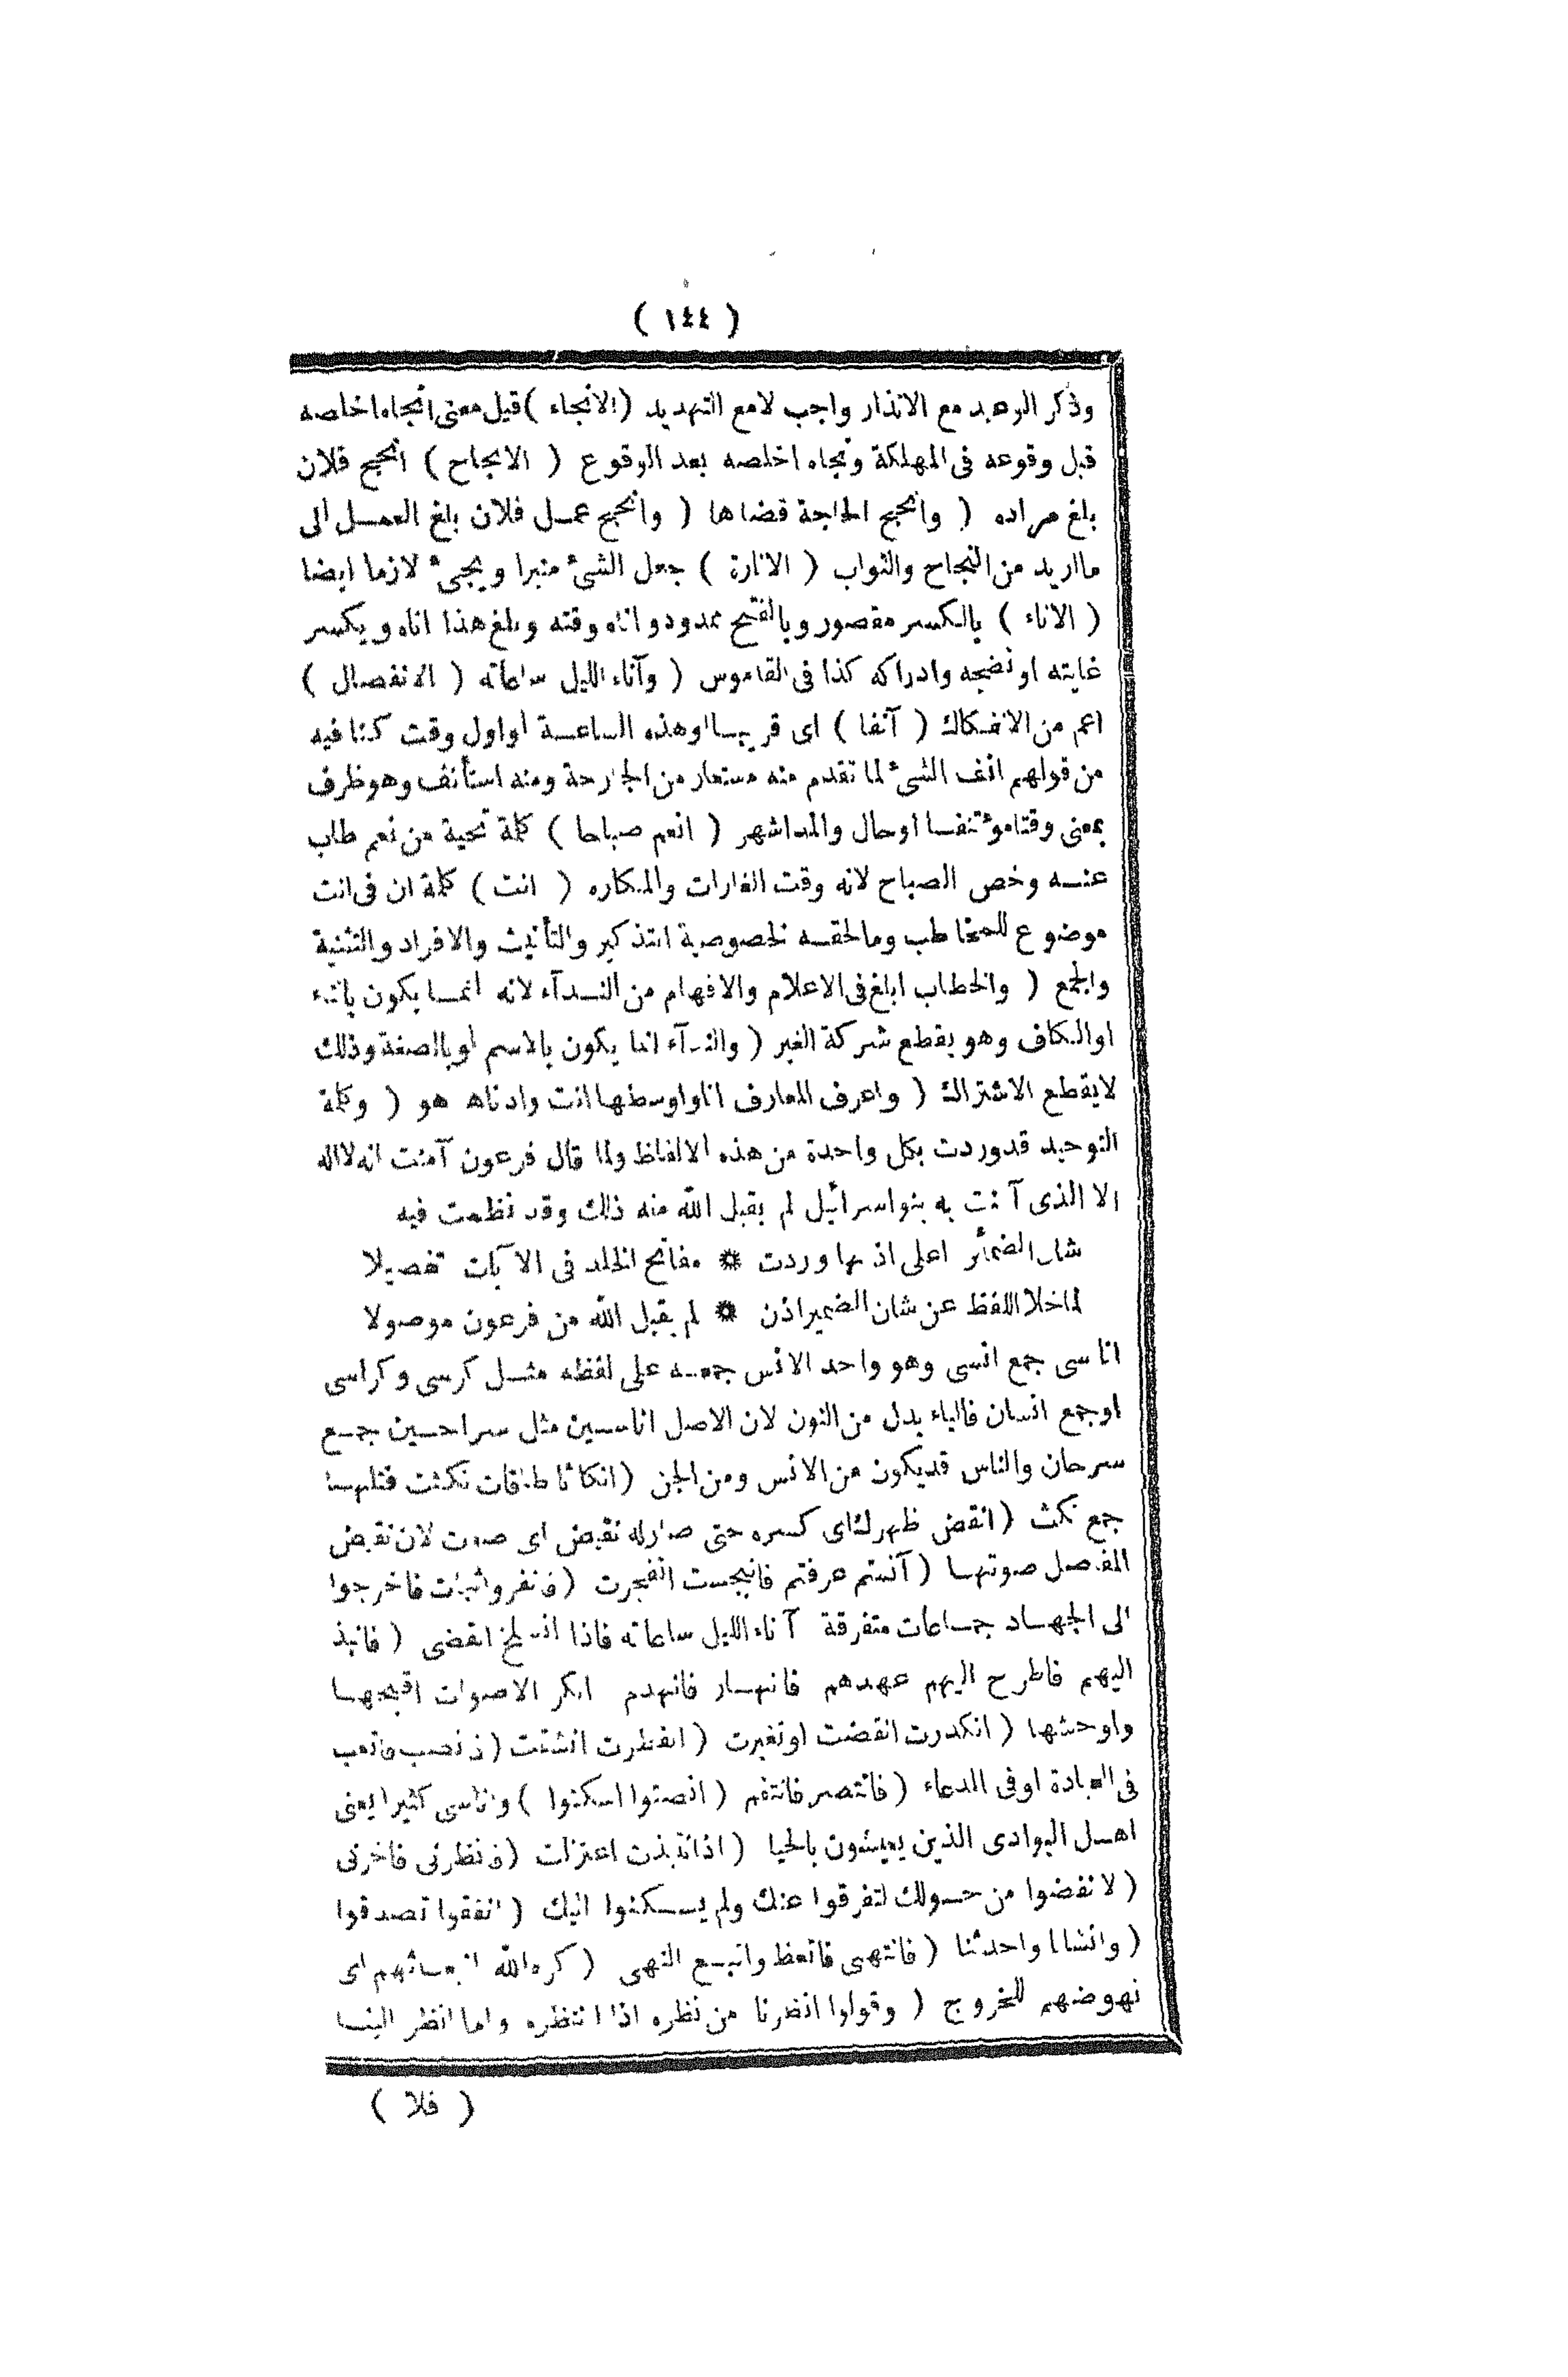 ( ١٤٤ )
وذكر الوعيد مع الانذار واجب لا مع التهديد ( الانجاء ) قيل معنى انجاه اخلصه
قبل وقوعه فى المهلكة ونجاه اخلصه بعد الوقوع ( الانجاح ) انجح فلان
بلغ مراده ( وانجح الحاجة قضاها ( وانجح عمل فلان بلغ العمل الى
ما اريد من النجاح والثواب ( الانارة ) جعل الشئ منيرا ويجئ لازما ايضا
( الاناء ) بالكسر مقصور وبالفتح ممدود واناه وقته وبلغ هذا اناه ويكسر
غايته او نضجه وادراكه كذا فى القاموس ( وآناء الليل ساعاته ( الانفصال )
اعم من الانفكاك ( آنفا ) اى قريبا او هذه الساعة او اول وقت كنا فيه
من قولهم انف الشئ لما تقدم منه مستعار من الجارحة ومنه استأنف وهو ظرف
بمعنى وقتا مؤتنفا او حال والمد اشهر ( انعم صباحا ) كلمة تحية من نعم طاب
عنه وخص الصباح لانه وقت الغارات والمكاره ( انت ) كلمة ان فى انت
موضوع للمخاطب وما لحقه لخصوصية التذكير والتأنيث والافراد والتثنية
والجمع ( والخطاب ابلغ فى الاعلام والافهام من النداء لانه انما يكون بالتاء
او الكاف وهو يقطع شركة الغير ( والندآء انما يكون بالاسم او بالصفة وذلك
لا يقطع الاشتراك ( واعرف المعارف انا واوسطها انت وادناها هو ( وكلمة
التوحيد قد وردت بكل واحدة من هذه الالفاظ ولما قال فرعون آمنت انه لا اله
الا الذى آمنت به بنو اسرائيل لم يقبل الله منه ذلك وقد نظمت فيه
شان الضمائر اعلى اذ بها وردت ❋ مفاتح الخلد فى الآيات تفصيلا
لما خلا اللفظ عن شان الضمير اذن ❋ لم يقبل الله من فرعون موصولا
اناسى جمع انسى وهو واحد الانس جمعه على لفظه مثل كرسى وكراسى
او جمع انسان فالياء بدل من النون لان الاصل اناسين مثل سراحين جمع
سرحان والناس قد يكون من الانس ومن الجن ( انكاثا طاقات نكثت فتلها
جمع نكث ( انقض ظهرك اى كسره حتى صار له نقيض اى صوت لان نقيض
المفاصل صوتها ( آنستم عرفتم فانبجست انفجرت ( فانفروا ثبات فاخرجوا
الى الجهاد جماعات متفرقة آناء الليل ساعاته فاذا انسلخ انقضى ( فانبذ
اليهم فاطرح اليهم عهدهم فانهار فانهدم انكر الاصوات اقبحها
واوحشها ( انكدرت انقضت او تغيرت ( انفطرت انشقت ( فانصب فاتعب
فى العبادة او فى الدعاء ( فانتصر فانتقم ( انصتوا اسكتوا ) واناسى كثيرا يعنى
اهل البوادى الذين يعيشون بالحيا ( اذ انتبذت اعتزلت ( فانظرنى فاخرنى
( لانفضوا من حولك لتفرقوا عنك ولم يسكنوا اليك ( انفقوا تصدقوا
( وانشانا واحدثنا ( فانتهى فاتعظ واتبع النهى ( كره الله انبعاثهم اى
نهوضهم للخروج ( وقولوا انظرنا من نظره اذا انتظره واما انظر الينا
( فلا )